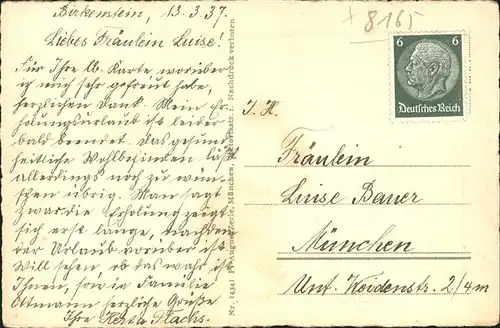 Birkenstein, 13.3.37.
Liebes Fräulein Luise!
Für Ihre lb. Karte worüber
ich mich sehr gefreut habe,
herzlichen Dank. Mein Er-
holungsurlaub ist leider
bald beendet. Das gesund-
heitliche Wohlbefinden läßt
allerdings noch zu wün-
schen übrig. Man sagt
zwar die Erholung zeigt
sich erst lange, nachdem
der Urlaub vorüber ist.
Will sehen, ob das wahr ist.
Ihnen, sowie Familie
Ottmann herzliche Grüße
Ihre
Nachdruck verboten
8165
6 6
Deutsches Reich
Fräulein
Luise Bauer
München
Unt. Weidenstr. 2/4m